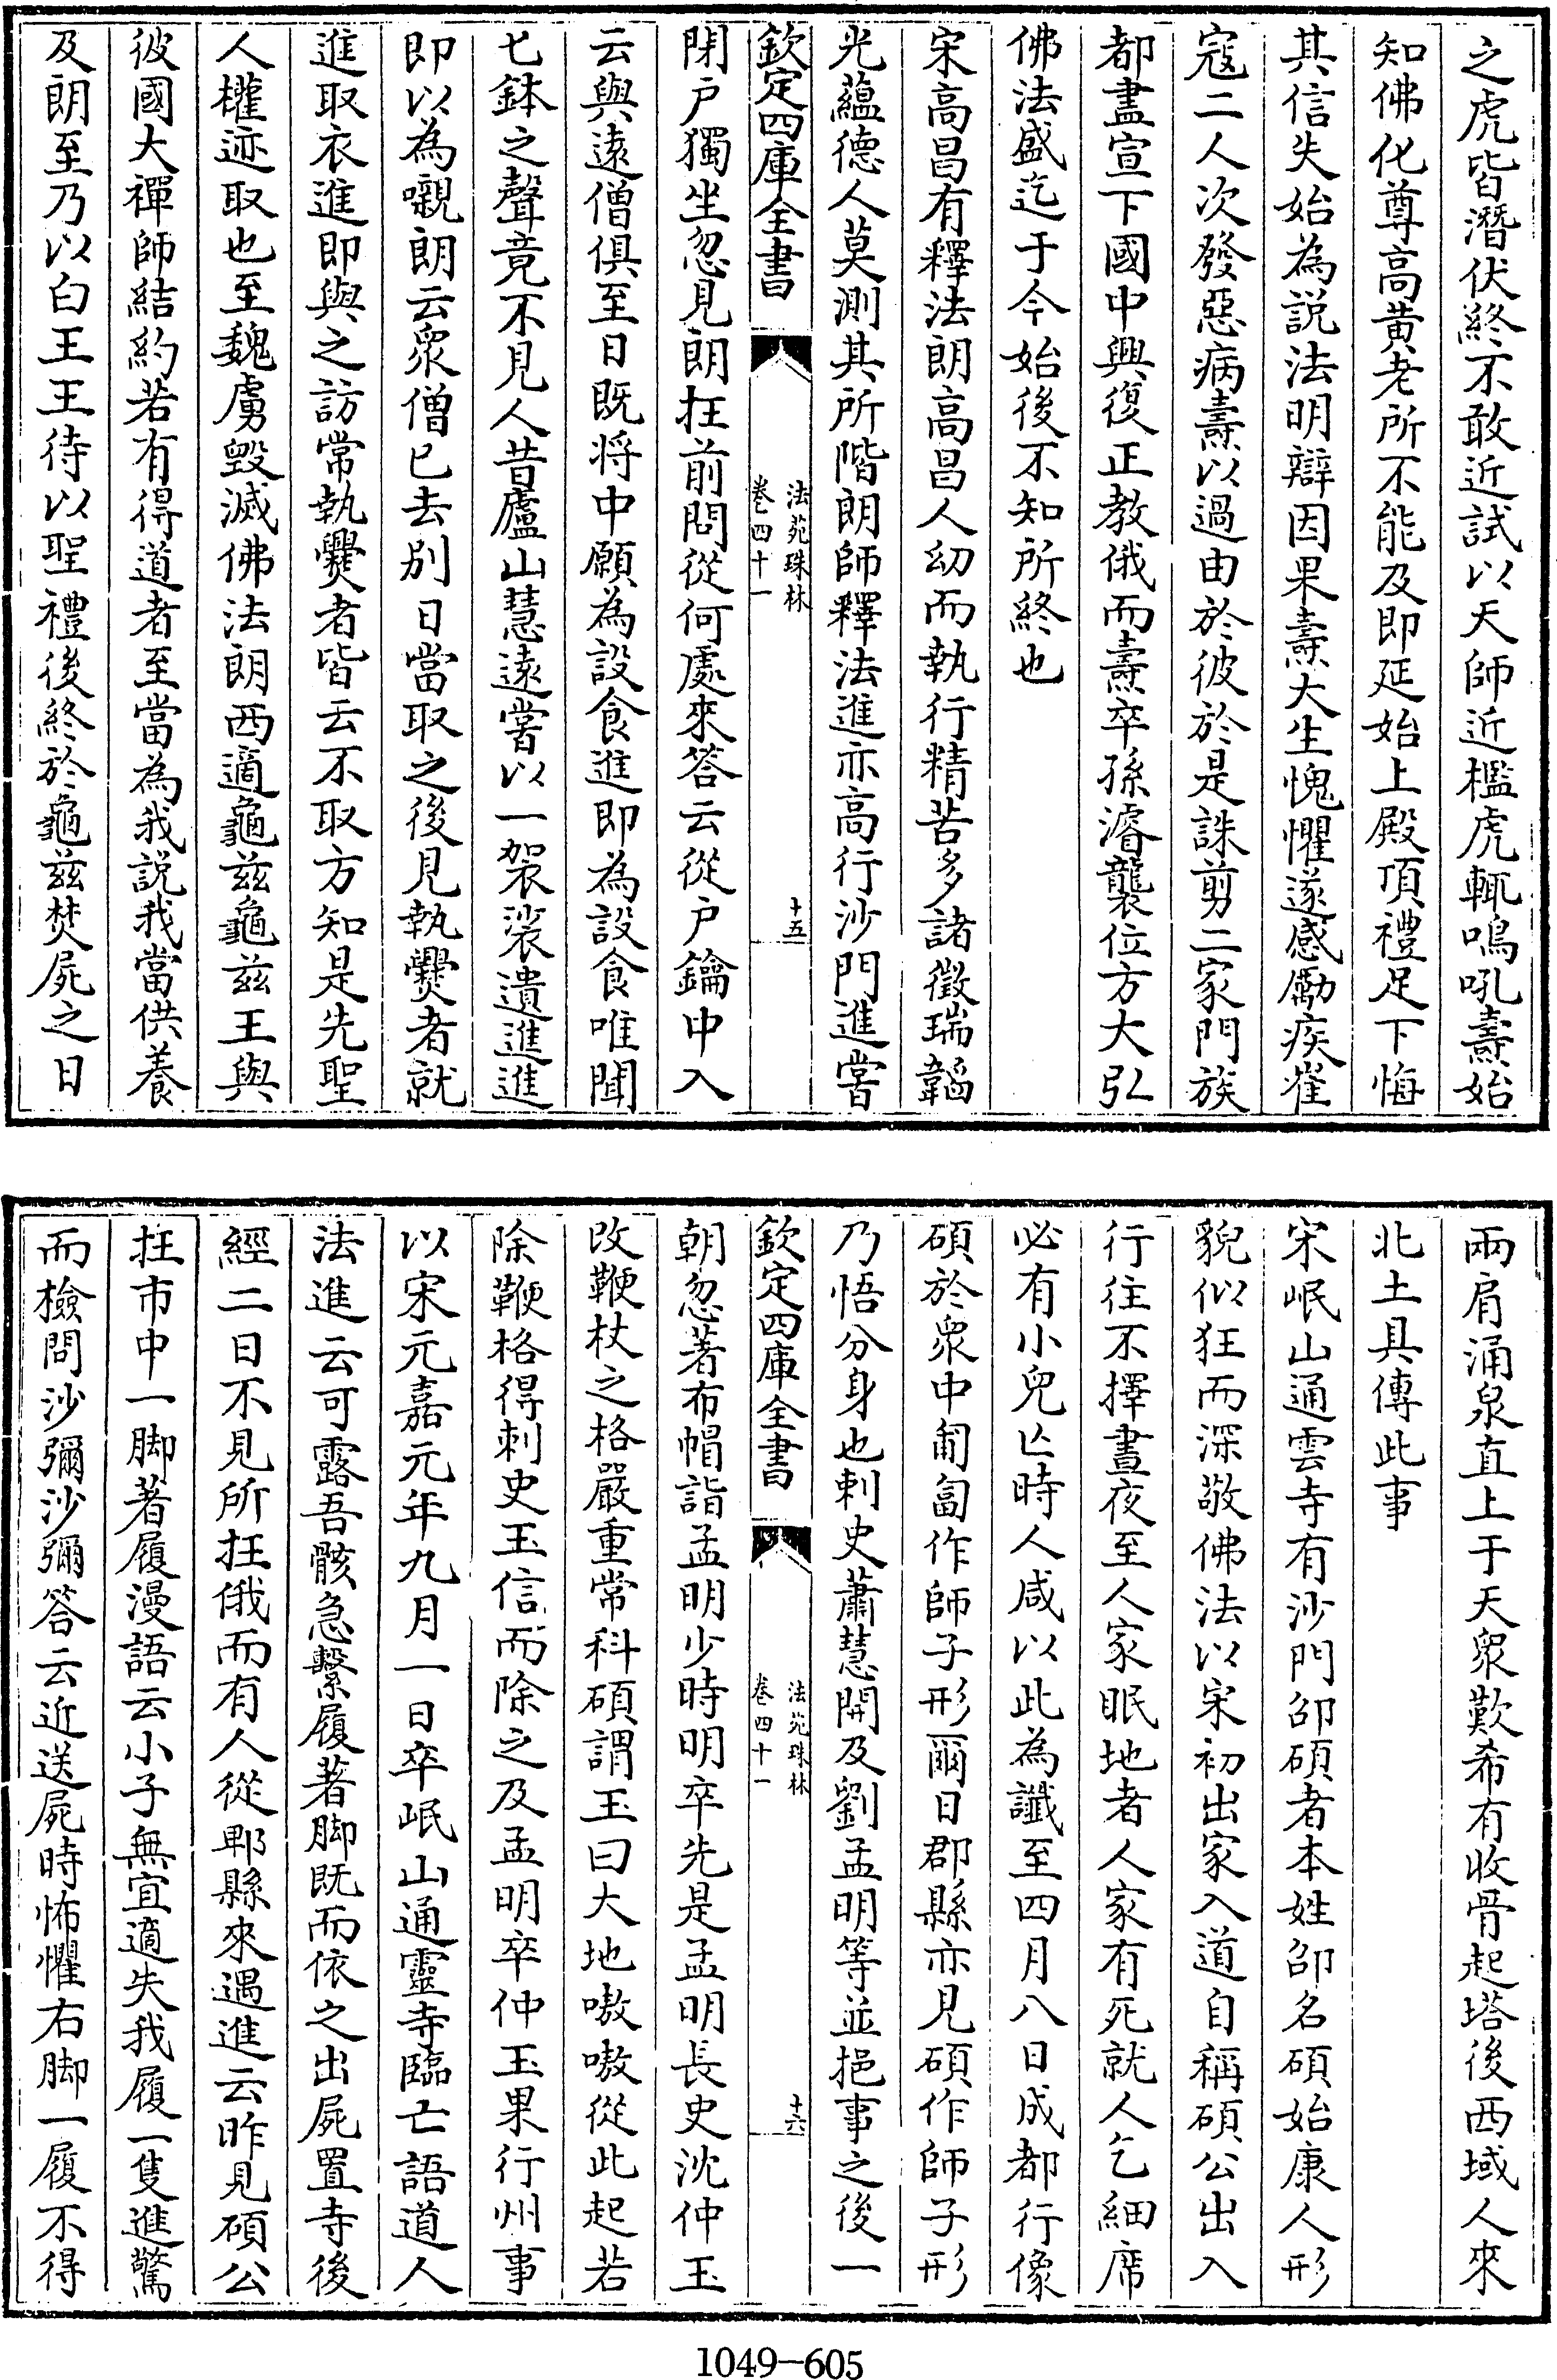 之虎皆潛伏終不敢近試以天師近檻虎輒鳴吼燾始
知佛化尊高黄老所不能及即延始上殿頂禮足下悔
其信失始為説法明辯因果燾大生愧懼遂感勵疾崔
寇二人次發惡病燾以過由於彼於是誅剪二家門族
都盡宣下國中興復正教俄而燾卒孫濬襲位方大弘
佛法盛迄于今始後不知所終也
宋高昌有釋法朗高昌人幼而執行精苦多諸徵瑞韜
光藴德人莫測其所階朗師釋法進亦高行沙門進嘗
欽定四庫全書
法苑珠林
卷四十一
十五
閉户獨坐忽見朗在前問從何處來答云從户鑰中入
云與遠僧俱至日既将中願為設食進即為設食唯聞
匕鉢之聲竟不見人昔廬山慧遠嘗以一袈裟遺進進
即以為嚫朗云衆僧已去别日當取之後見執爨者就
進取衣進即與之訪常執爨者皆云不取方知是先聖
人權迹取也至魏虜毀滅佛法朗西適龜兹龜兹王與
彼國大禪師結約若有得道者至當為我説我當供養
及朗至乃以白王王待以聖禮後終於龜兹焚屍之日
兩肩涌泉直上于天衆歎希有收骨起塔後西域人來
北土具傳此事
宋岷山通雲寺有沙門邵碩者本姓邵名碩始康人形
貌似狂而深敬佛法以宋初出家入道自稱碩公出入
行往不擇晝夜至人家眠地者人家有死就人乞細席
必有小兒亡時人咸以此為讖至四月八日成都行像
碩於衆中匍匐作師子形爾日郡縣亦見碩作師子形
乃悟分身也刺史蕭慧開及劉孟明等並挹事之後一
欽定四庫全書
法苑珠林
卷四十一
十六
朝忽著布帽詣孟明少時明卒先是孟明長史沈仲玉
改鞭杖之格嚴重常科碩謂玉曰大地嗷嗷從此起若
除鞭格得刺史玉信而除之及孟明卒仲玉果行州事
以宋元嘉元年九月一日卒岷山通靈寺臨亡語道人
法進云可露吾骸急繫履著脚既而依之出屍置寺後
經二日不見所在俄而有人從郫縣來遇進云昨見碩公
在市中一脚著履漫語云小子無宜適失我履一隻進驚
而檢問沙彌沙彌答云近送屍時怖懼右脚一履不得
1049-605